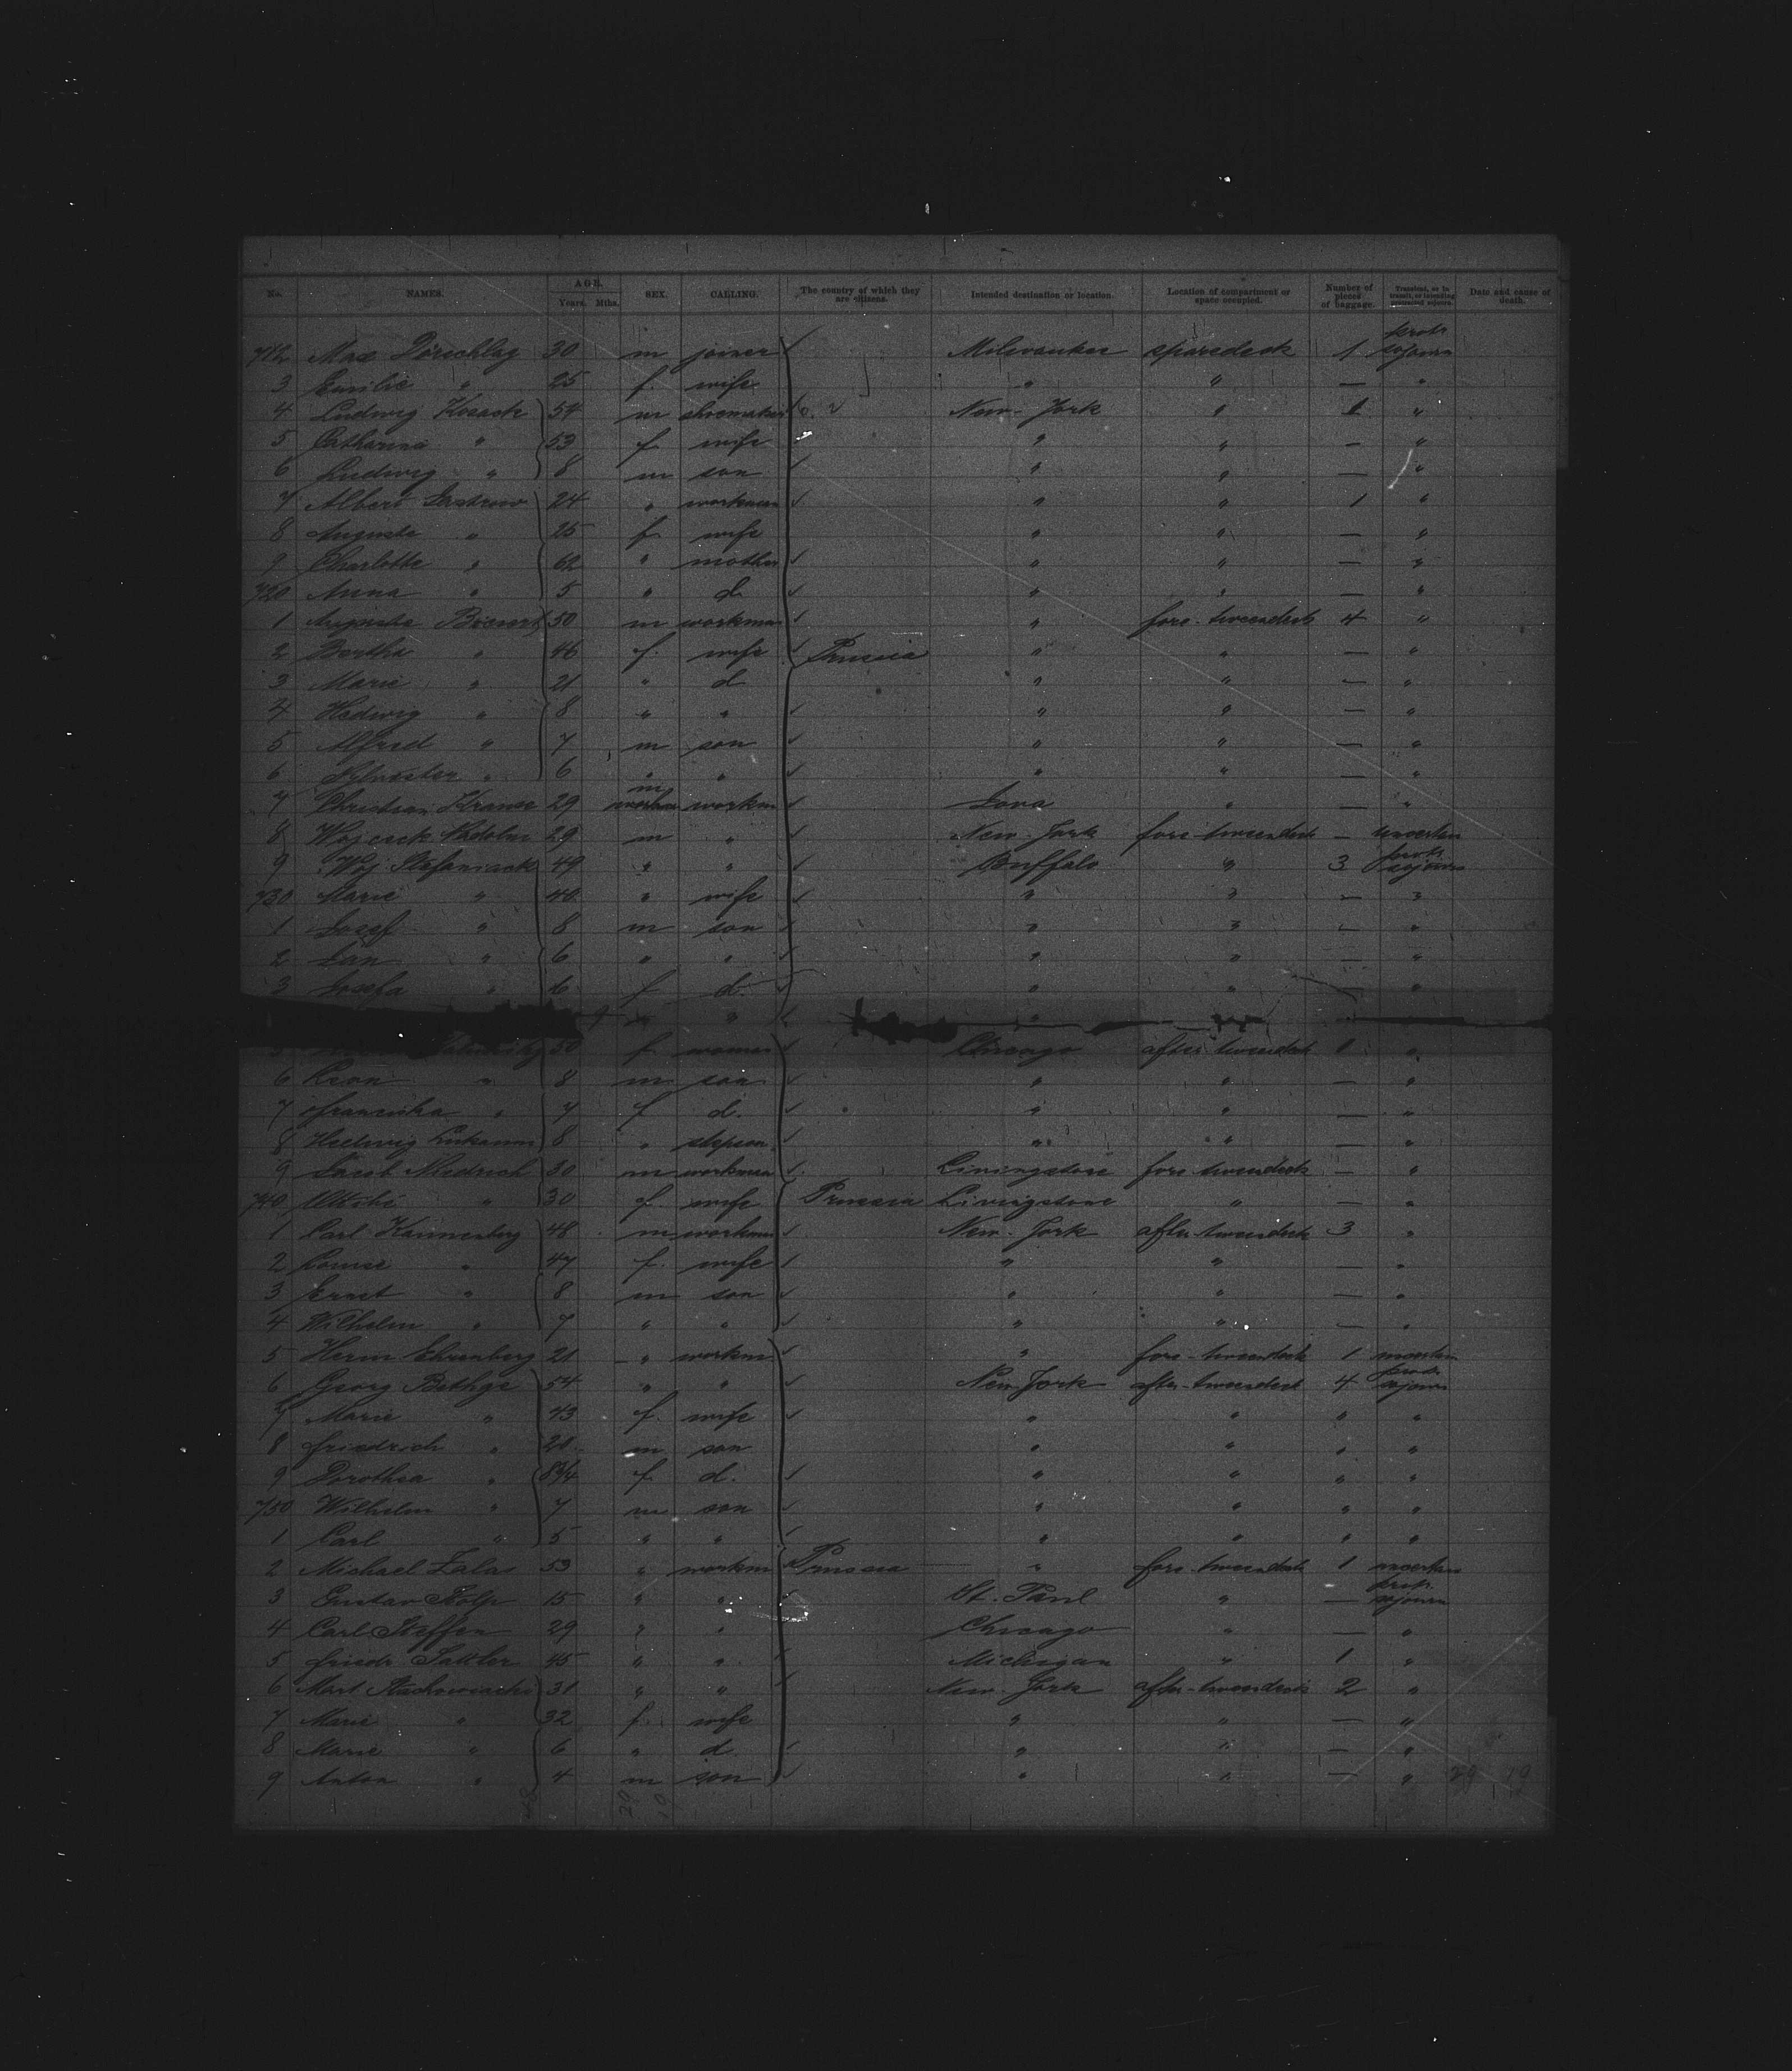 No. NAMES. AGE. Years. Mths. SEX. CALLING. The country of which they are citizens. Intended destination or location. Location of compartment or space occupied. Number of pieces of baggage. Transient, or in transit, or intending protracted sojourn. Date and cause of death.
712 Max Dörschlag 30 m joiner Milwaukee sparedeck 1 protr sojourn
3 Emilie " 25 f. wife " " — "
4 Ludwig Kosack 54 m shoemaker New-York " 1 "
5 Catharina " 53 f wife " " — "
6 Ludwig " 8 m son " " — "
7 Albert 24 " workman " " 1 "
8 Auguste " 25 f wife " " — "
9 Charlotte " 62 " mother " " — "
720 Anna " 5 " d " " — "
1 Auguste 50 m workman " fore-tweendeck 4 "
2 Bertha " 46 f. wife Prussia " " — "
3 Marie " 21 " d " " — "
4 Hedwig " 8 " " " " — "
5 Alfred " 7 m son " " — "
6 Sylvester " 6 " " " " — "
7 Christian Krause 29 m workm " — "
8 29 m " New-York fore-tweendeck —
9 Woj Stefaniack 49 " " Buffalo " 3 protr sojourn
730 Marie " 40 " wife " " — "
1 Josef " 8 m son " " — "
2 Jan " 6 " " " " — "
3 Josefa " 6 f d. " " — "
9 " "
5 50 f. woman Chicago after tweendeck 1 "
6 Leon " 8 m son " " — "
7 Franciska " 7 f d. " " — "
8 Hedwig 8 " stepson " " — "
9 Jacob Niedrich 30 m workman Livingstone fore tweendeck — "
740 " 30 f. wife Prussia Livingstone " — "
1 Carl Kannenberg 48 m workman New-York after tweendeck 3 "
2 Louise " 47 f. wife " " — "
3 Ernst " 8 m son " " — "
4 Wilhelm " 7 " " " " — "
5 Herm Ehrenberg 21 " workm " fore-tweendeck 1
6 Georg Bethge 54 " " New-York after-tweendeck 4 protr sojourn
7 Marie " 43 f. wife " " " "
8 Friedrich " 20 m son " " " "
9 Dorothea " 8 3/4 f. d. " " " "
750 Wilhelm " 7 m son " " " "
1 Carl " 5 " " " " " "
2 Michael Zalas 53 " workm Prussia " fore-tweendeck 1
3 Gustav 15 " " St. Paul " — protr sojourn
4 Carl Steffen 29 " " Chicago " — "
5 Friedr Sattler 45 " " Michigan " 1 "
6 Mart 31 " " New-York after-tweendeck 2 "
7 Marie " 32 f. wife " " — "
8 Marie " 6 " d " " — "
9 Anton " 4 m son " " — "